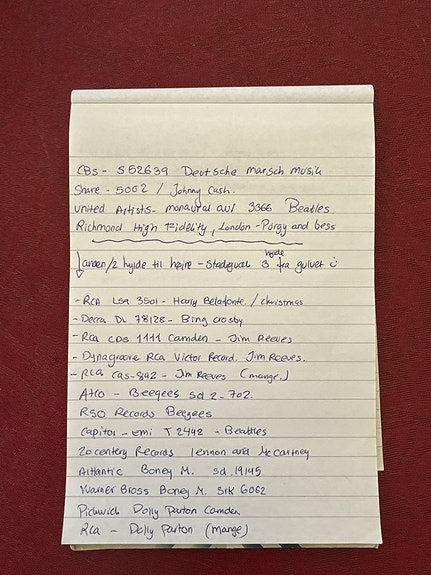 CBS - S 52639 Deutsche marsch musik
Share - 5002 / Johnny Cash.
united Artists - monaural aul 3366 Beatles.
Richmond High Fidelity, London - Porgy and bess
anden/2 hylde til højre - Stadigvæk 3 hylde fra gulvet
- RCA LSA 3501 - Harry Belafonte. / christmas
- Decca DL 78128 - Bing crosby
- Rca CDS 1111 Camden - Jim Reeves
- Dynagroove Rca Victor Record. Jim Reeves.
- Rca Cas-842 - Jim Reeves (mange.)
Atco - Beegees Sd 2-702.
RSO Records Beegees
Capitol - emi T 2442 - Beatles
20 centery Records lennon and Mc Cartney
Atlantic Boney M. sd. 19145
Warner Bross Boney M. Srk 6062
Pickwick Dolly Parton Camden
Rca - Dolly Parton (mange)